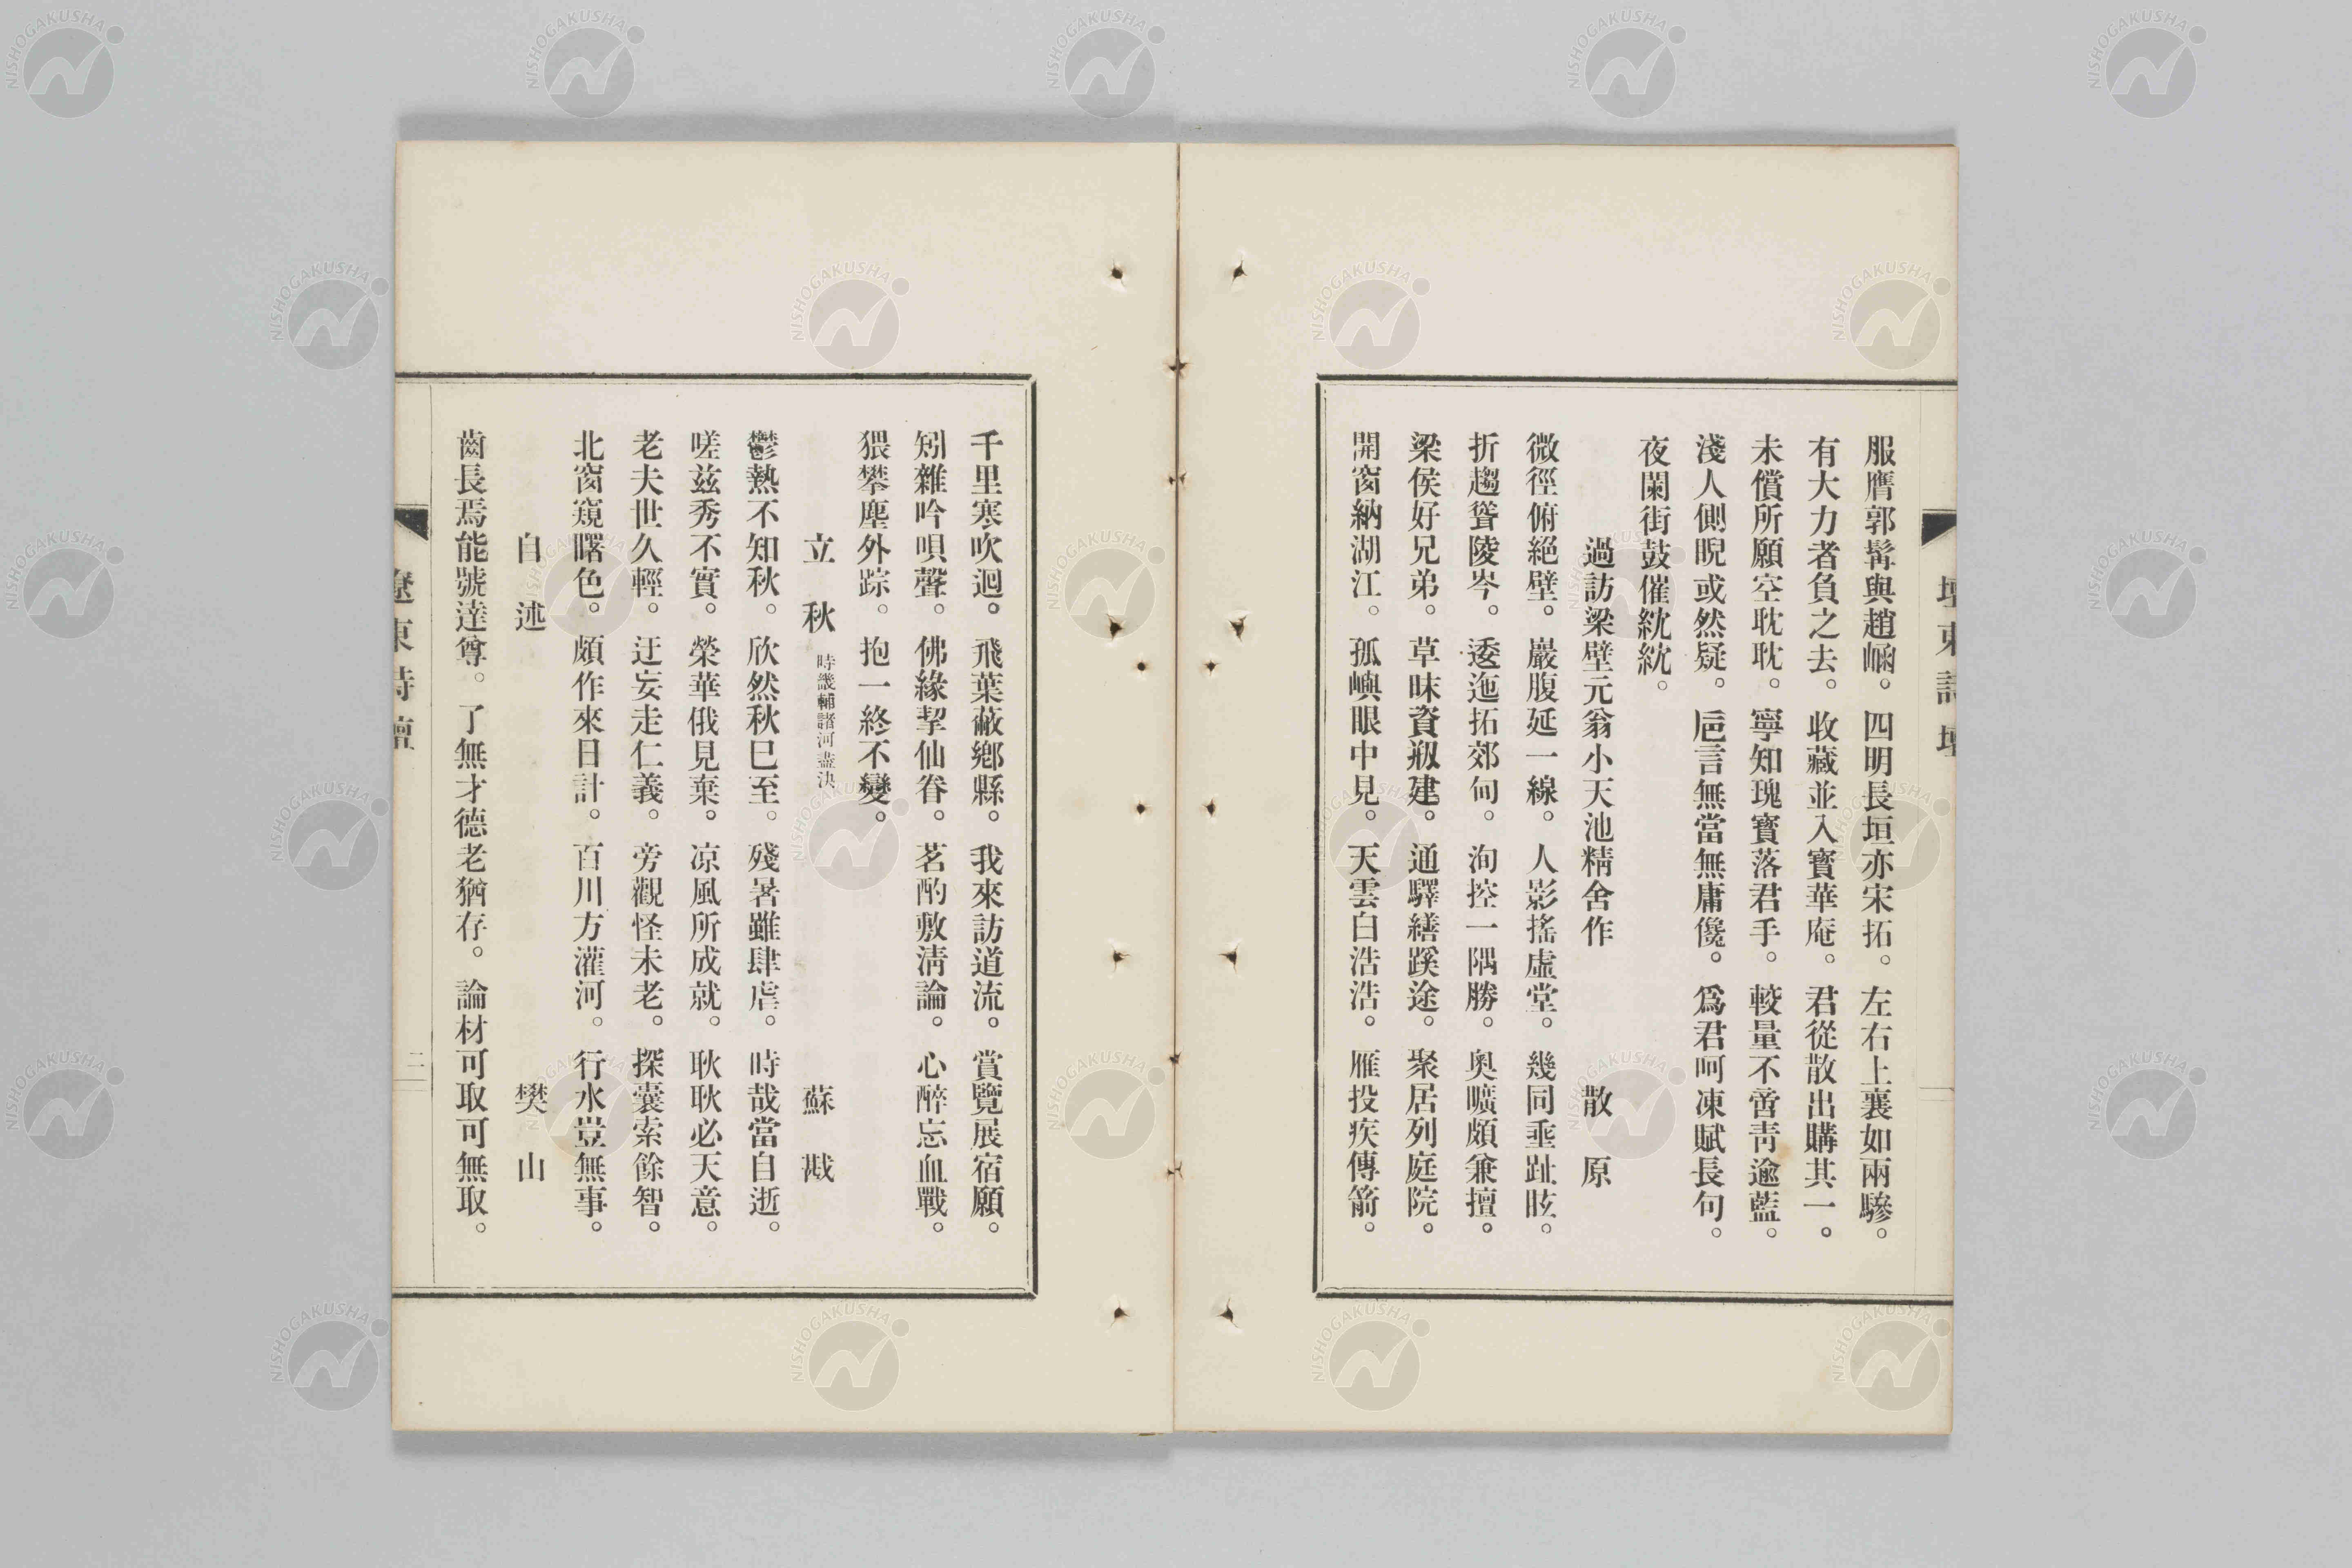 服膺郭髯與趙崡。四明長垣亦宋拓。左右上襄如兩驂。
有大力者負之去。收藏並入寶華庵。君從散出購其一。
未償所願空耽耽。寧知瑰寶落君手。較量不啻靑逾藍。
淺人側睨或然疑。巵言無當無庸儳。爲君呵凍賦長句。
夜闌街鼓催紞紞。
過訪梁壁元翁小天池精舍作 散原
微徑俯絕壁。巖腹延一線。人影搖虛堂。幾同垂趾眩。
折趨聳陵岑。逶迤拓郊甸。洵控一隅勝。奥曠頗兼擅。
梁侯好兄弟。草昧資剏建。通驛繕蹊途。聚居列庭院。
開窗納湖江。孤嶼眼中見。天雲白浩浩。雁投疾傳箭。
千里寒吹迴。飛葉蔽鄉縣。我來訪道流。賞覽展宿願。
矧雜吟唄聲。佛緣挈仙眷。茗酌敷淸論。心醉忘血戰。
猥攀塵外踪。抱一終不變。
立秋 時畿輔諸河盡決 蘇戡
鬱熱不知秋。欣然秋巳至。殘暑雖肆虐。時哉當自逝。
嗟兹秀不實。榮華俄見棄。凉風所成就。耿耿必天意。
老夫世久輕。迂妄走仁義。旁觀怪未老。探囊索餘智。
北窗窺曙色。頗作來日計。百川方灌河。行水豈無事。
自述 樊山
齒長焉能號達尊。了無才德老猶存。論材可取可無取。
遼東詩壇
二